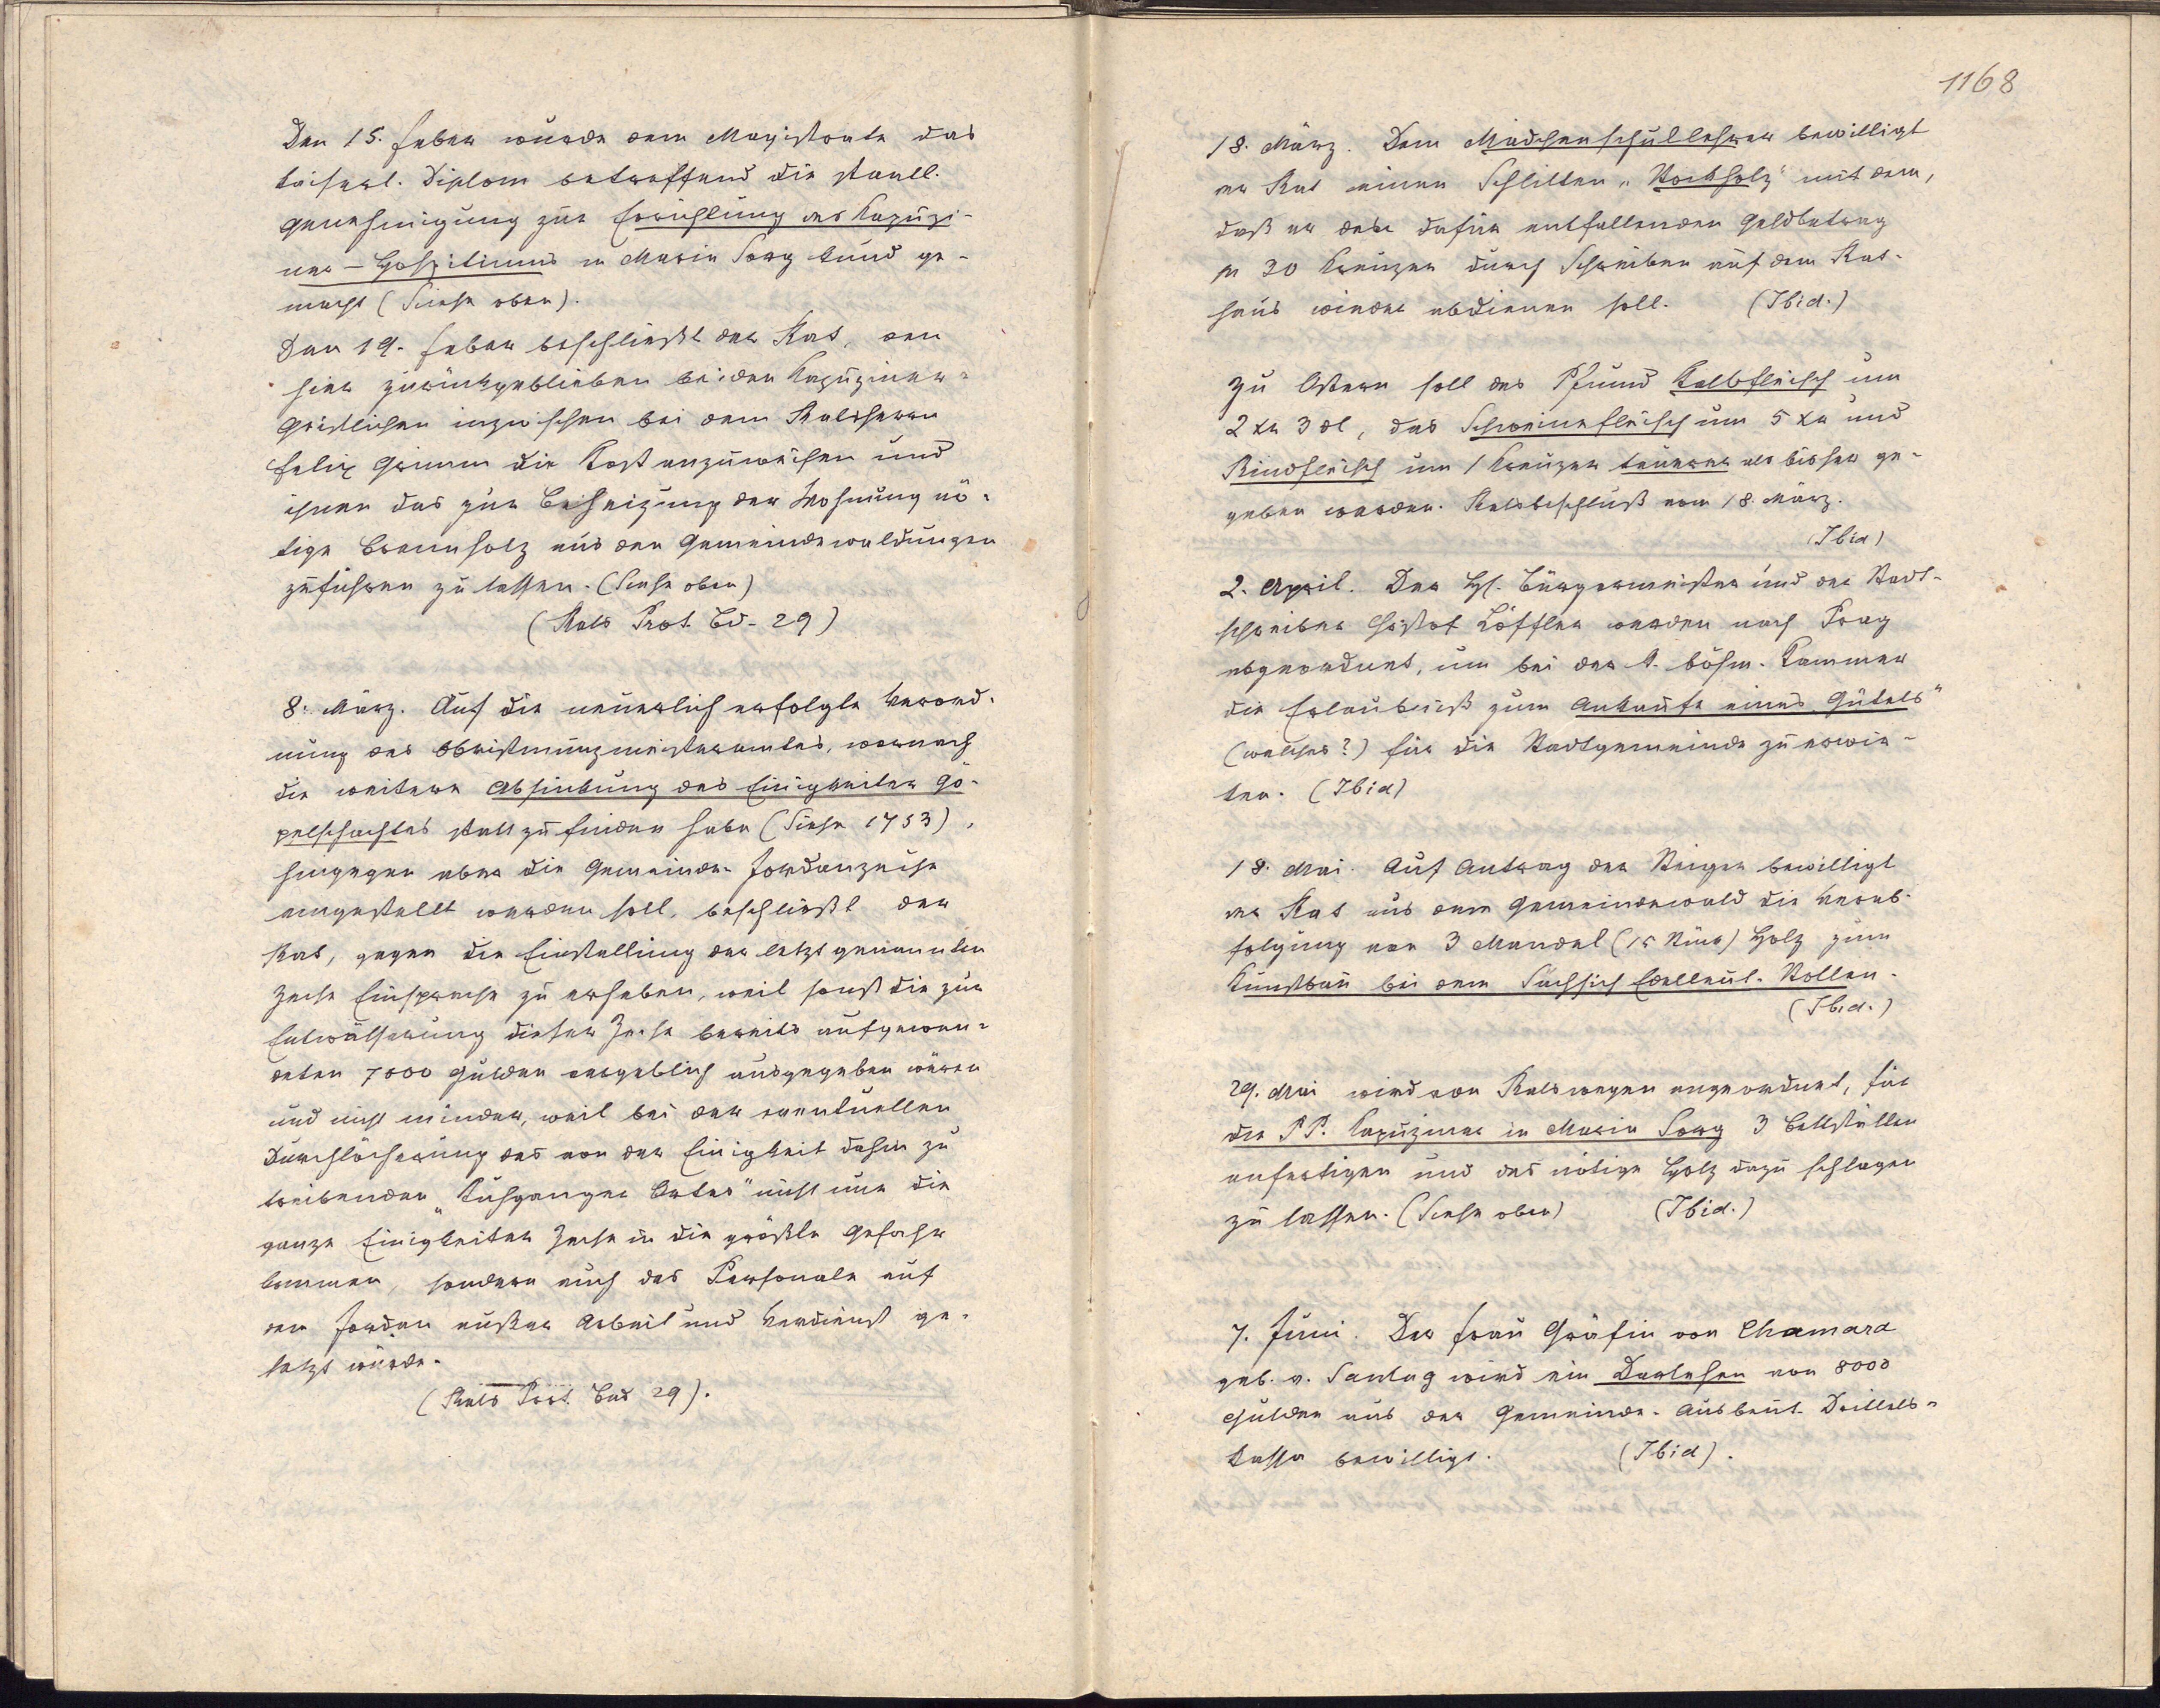 Den 15. Feber wurde dem Magistrate das
kaiserl. Diplom betreffend die staatl.
Genehmigung zur Errichtung des Kapuzi-
ner-Hospitiums in Maria Sorg kund ge-
macht (Siehe oben).
Den 19. Feber beschließt der Rat, den
hier zurückgeblieben beiden Kapuziner-
Geistlichen inzwischen bei dem Ratsherrn
Felix Grimm die Kost anzuweisen und
ihnen das zur Beheizung der Wohnung nö-
tige Brennholz aus den Gemeindewaldungen
zuführen zu lassen. (Siehe oben)
(Rats Prot. Bd. 29)
8. März. Auf die neuerlich erfolgte Verord-
nung des Obristmünzmeisteramtes, wornach
die weitere Absinkung des Einigkeiter Gö-
pelschachtes statt zu finden habe (Siehe 1753),
hingegen aber die Gemeinde-Jordanzeche
eingestellt werden soll, beschließt der
Rat, gegen die Einstellung der letzt genannten
Zeche Einsprache zu erheben, weil sonst die zur
Entwässerung dieser Zeche bereits aufgewen-
deten 7000 Gulden vergeblich ausgegeben wären
und nicht minder, weil bei der eventuellen
Durchlöcherung des von der Einigkeit dahin zu
treibenden „Kuhganger Ortes" nicht nur die
ganze Einigkeiter Zeche in die größte Gefahr
kommen, sondern auch das Personale auf
dem Jordan außer Arbeit und Verdienst ge-
setzt würde.
(Rats Prot. Bd 29).
1168
18. März. Dem Mädchenschullehrer bewilligt
der Rat einen Schlitten „Stockholz" mit dem,
daß er den dafür entfallenden Geldbetrag
pr 30 Kreuzer durch Schreiben auf dem Rat-
haus wieder abdienen soll. (Ibid.)
Zu Ostern soll das Pfund Kalbfleisch um
2 xr 3 dl, das Schweinefleisch um 5 xr und
Rindfleisch um 1 Kreuzer teuerer als bisher ge-
geben werden. Ratsbeschluß vom 18. März.
(Ibid)
2. April. Der H. Bürgermeister und der Stadt-
schreiber Christof Löffler werden nach Prag
abgeordnet, um bei der k. böhm. Kammer
die Erlaubniß zum Ankaufe eines Gütels"
(welches?) für die Stadtgemeinde zu erwir-
ken. (Ibid)
18. Mai. Auf Antrag der Steiger bewilligt
der Rat aus dem Gemeindewald die Verab-
folgung von 3 Mandel (15 Stück) Holz zum
Kunstbau bei dem Sächsisch Edelleut-Stollen.
(Ibid.)
29. Mai wird von Ratswegen angeordnet, für
die P P. Kapuziner in Maria Sorg 3 Bettstellen
anfertigen und das nötige Holz dazu schlagen
zu lassen. (Siehe oben) (Ibid.)
7. Juni. Der Frau Gräfin von Chamara
geb. v. Santag wird ein Darlehen von 8000
Gulden aus der Gemeinde-Ausbeut-Drittels-
Kassa bewilligt. (Ibid).